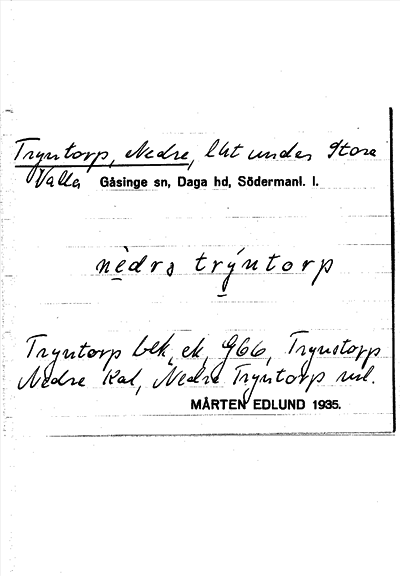 Tryntorp, Nedre, lht under Stora
Valla Gåsinge sn, Daga hd, Södermanl. l.
nèdrə trýntorp
Tryntorp bek, ek, G66, Trynstorp
Nedre Kal, Nedre Tryntorp rul.
MÅRTEN EDLUND 1935.